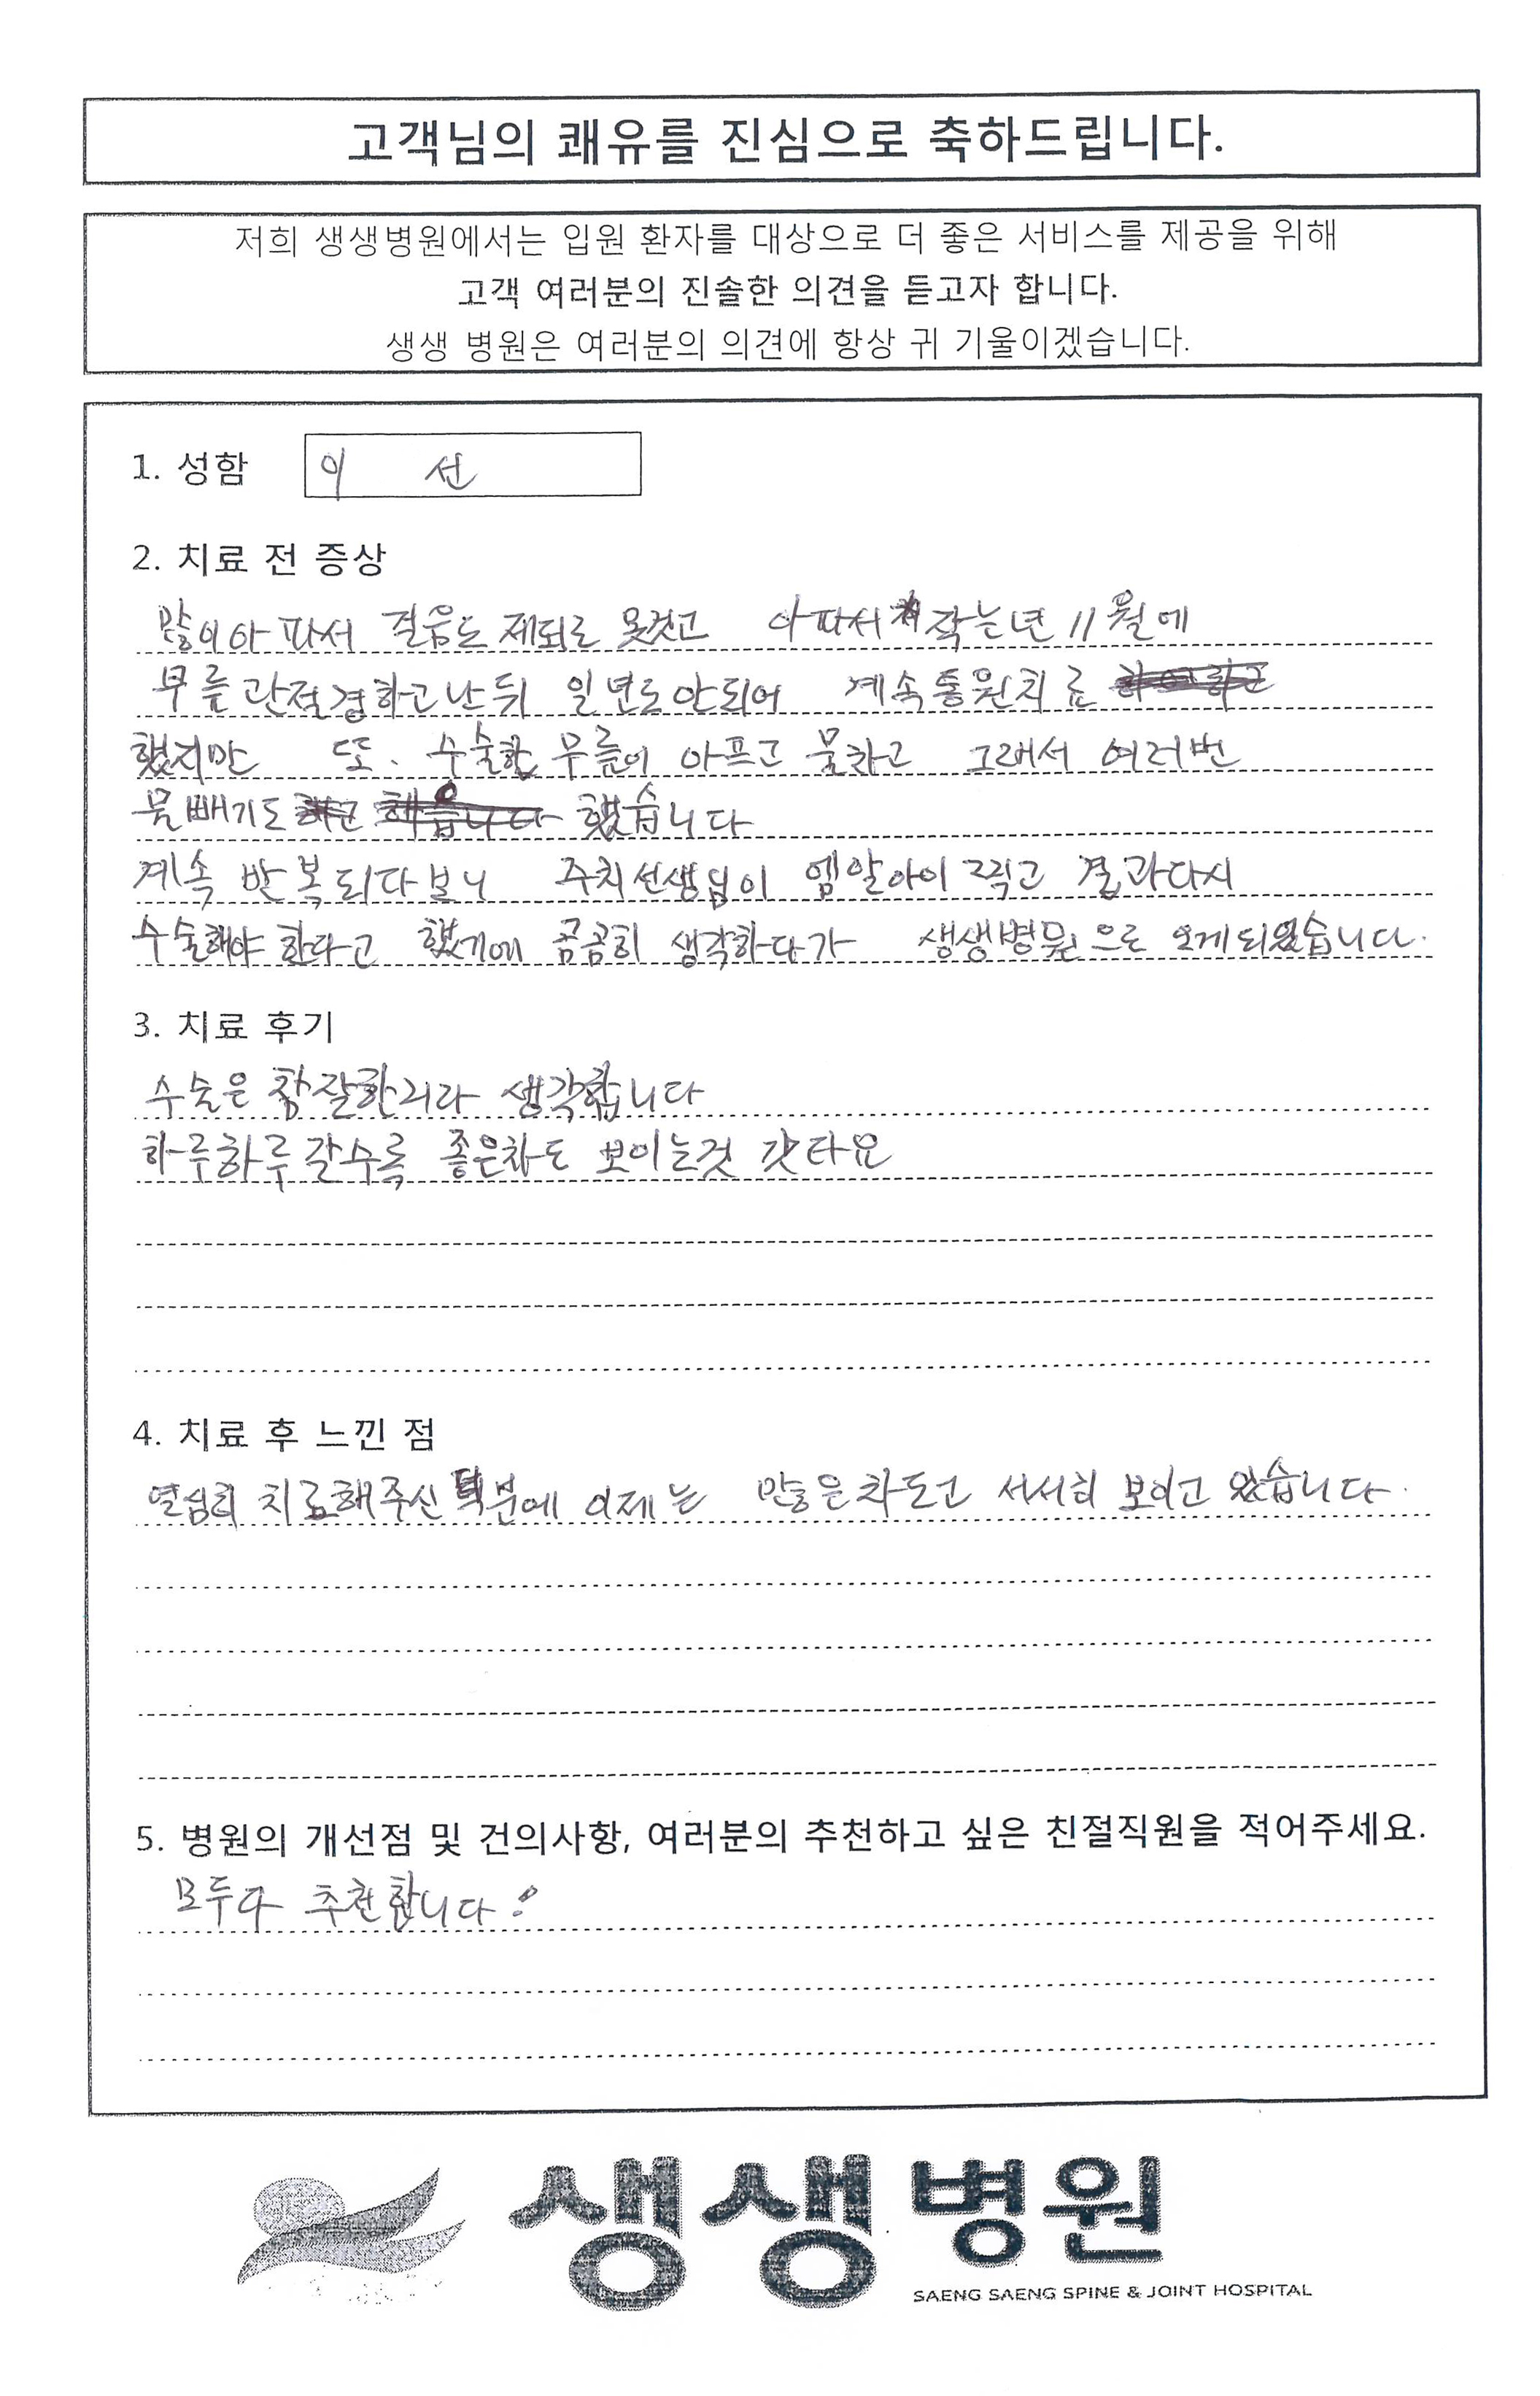 고객님의 쾌유를 진심으로 축하드립니다.
저희 생생병원에서는 입원 환자를 대상으로 더 좋은 서비스를 제공을 위해
고객 여러분의 진솔한 의견을 듣고자 합니다.
생생 병원은 여러분의 의견에 항상 귀 기울이겠습니다.
1. 성함 이 선
2. 치료 전 증상
많이아파서 걸음도 제되로 못걷고 아파서 작는년 11월에
무릎관절경하고난뒤 일년도안되어 계속통원치료
했지만 또. 수술한 무릎이 아프고 물차고 그래서 여러번
물빼기도 했습니다
계속 반복되다보니 주치선생님이 엠알아이 찍고 결과다시
수술해야 한다고 했기에 곰곰히 생각하다가 생생병원으로 오게되었습니다.
3. 치료 후기
수술은 참잘한거라 생각합니다
하루하루갈수록 좋은차도 보이는것 갓타요
4. 치료 후 느낀 점
열심히 치료해주신 덕분에 이제는 많은차도고 서서히 보이고 있습니다.
5. 병원의 개선점 및 건의사항, 여러분의 추천하고 싶은 친절직원을 적어주세요.
모두다 추천합니다!
생생병원
SAENG SAENG SPINE & JOINT HOSPITAL